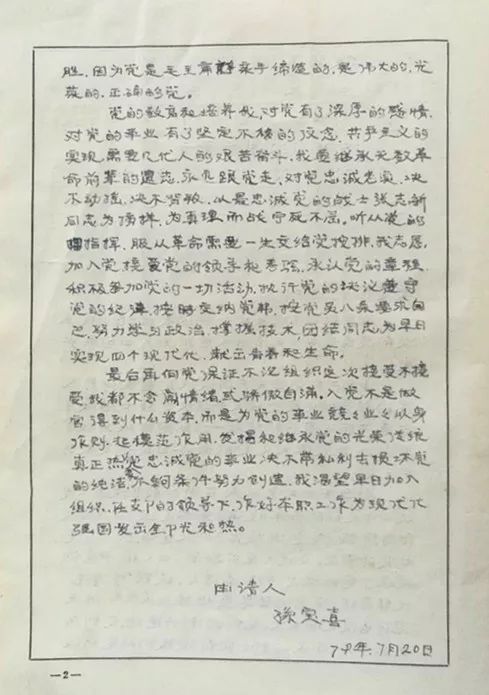 胜,因为党是毛主席亲手缔造的,是伟大的,光
荣的,正确的党。
党的教育和培养我,对党有了深厚的感情,
对党的事业有了坚定不移的信念,共产主义的
实现需要几代人的艰苦奋斗,我要继承无数革
命前辈的遗志,永远跟党走,对党忠诚老实,决
不动摇,决不背叛,以最忠诚党的战士张志新
同志为榜样,为真理而战宁死不屈。听从党的
指挥,服从革命需要一生交给党按排,我志愿
加入党接受党的领导和考验,承认党的章程,
积极参加党的一切活动,执行党的决议遵守
党的纪律,按时交纳党费,按党员八条要求自
己,努力学习政治,撑握技术,团结同志为早日
实现四个现代化,献出青春和生命。
最后再向党保证不论组织这次接受不接
受我都不会闹情绪或骄傲自满,入党不是做
官得到什么资本,而是为党的事业兢〈业〈以身
作则,起模范作用,发揚和继承党的光荣传统
真正热爱党忠诚党的事业决不带私利去损坏党
的纯洁,不夠条件努力创造,我渴望早日加入
组织,在支卩的领导下,作好本职工作为现代化
强国发出全卩光和热。
申请人
喜
79年.7月20日
—2—